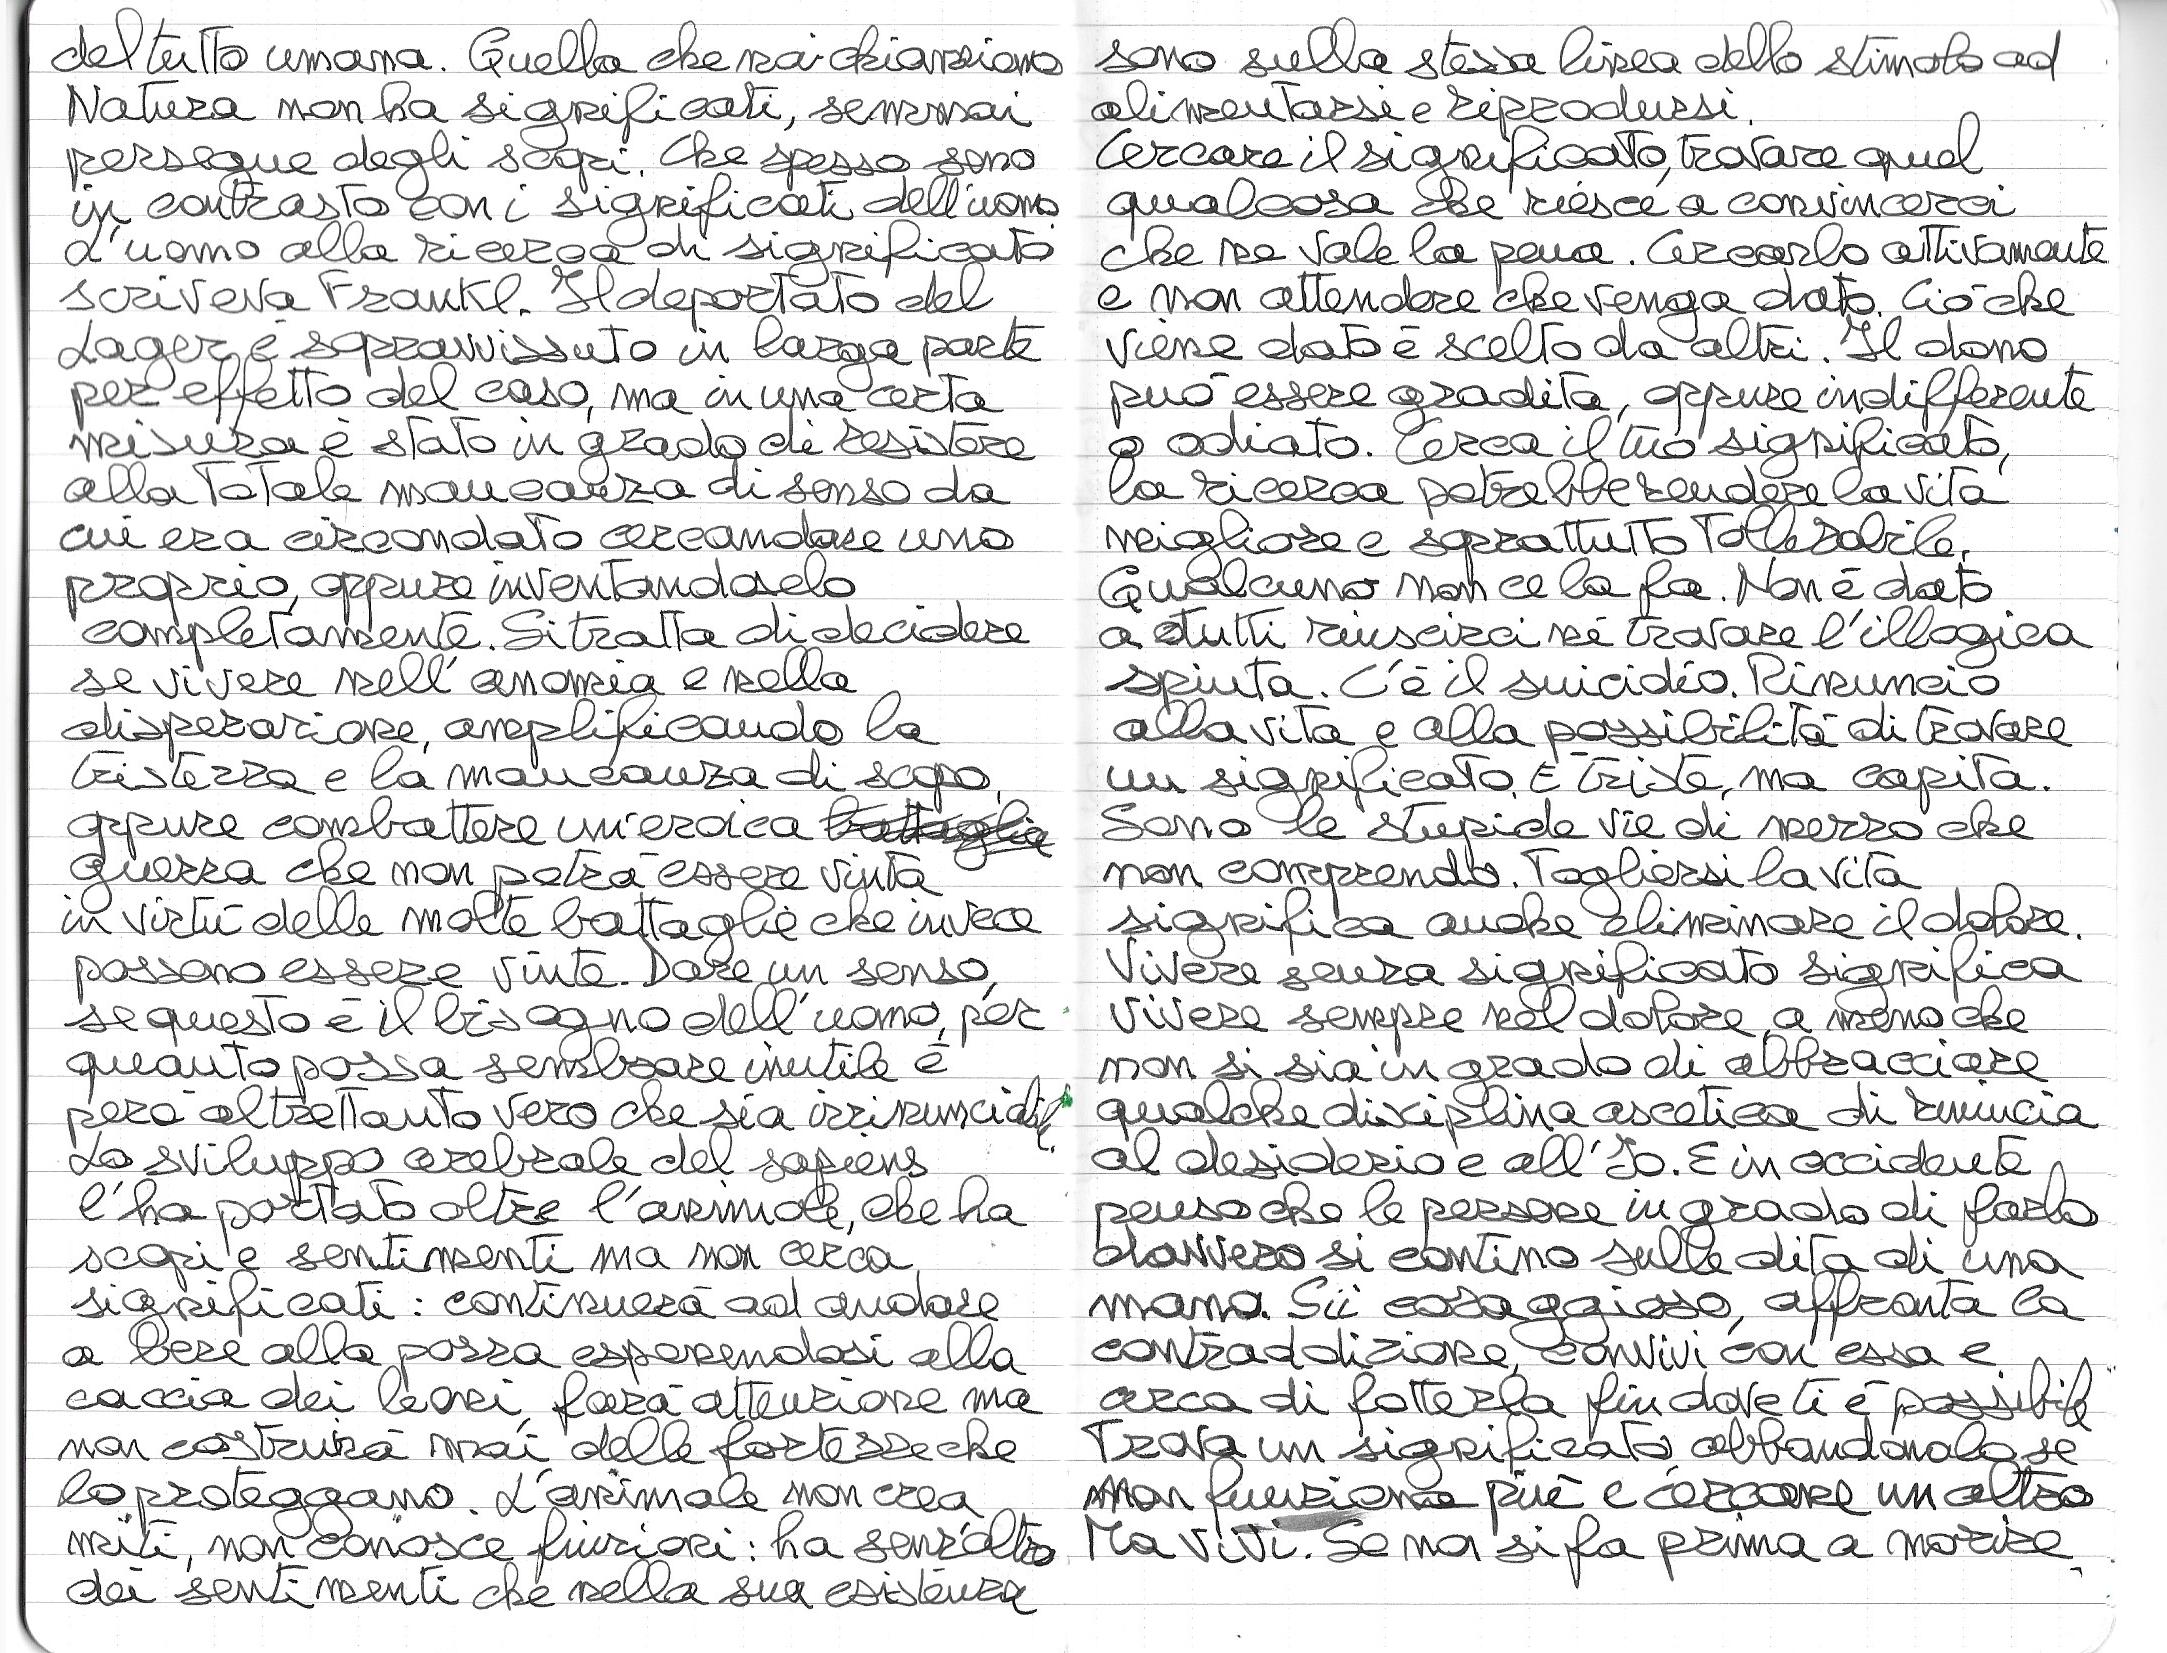 del tutto umana. Quella che noi chiamiamo
Natura non ha significati, semmai
persegue degli scopi. Che spesso sono
in contrasto con i significati dell'uomo
L'uomo alla ricerca di significato
scriveva Frankl. Il deportato del
Lager è sopravvissuto in larga parte
per effetto del caso, ma in una certa
misura è stato in grado di resistere
alla totale mancanza di senso da
cui era circondato cercandone uno
proprio, oppure inventandoselo
completamente. Si tratta di decidere
se vivere nell'anomia e nella
disperazione, amplificando la
tristezza e la mancanza di scopo,
oppure combattere un'eroica battaglia
guerra che non potrà essere vinta
in virtù delle molte battaglie che invece
possono essere vinte. Dare un senso,
se questo è il bisogno dell'uomo, per
quanto possa sembrare inutile è
però altrettanto vero che sia irrinunciabile.
Lo sviluppo cerebrale del sapiens
l'ha portato oltre l'animale, che ha
scopi e sentimenti ma non cerca
significati: continuerà ad andare
a bere alla pozza esponendosi alla
caccia dei leoni, farà attenzione ma
non costruirà mai delle fortezze che
lo proteggano. L'animale non crea
miti, non conosce finzioni: ha senz'altro
dei sentimenti che nella sua esistenza
sono sulla stessa linea dello stimolo ad
alimentarsi e riprodursi.
Cercare il significato, trovare quel
qualcosa che riesce a convincerci
che ne vale la pena. Cercarlo attivamente
e non attendere che venga dato. Ciò che
viene dato è scelto da altri. Il dono
può essere gradito, oppure indifferente
o odiato. Cerca il tuo significato,
la ricerca potrebbe rendere la vita
migliore e soprattutto tollerabile.
Qualcuno non ce la fa. Non è dato
a tutti riuscirci né trovare l'illogica
spinta. C'è il suicidio. Rinuncio
alla vita e alla possibilità di trovare
un significato. È triste, ma capita.
Sono le stupide vie di mezzo che
non comprendo. Togliersi la vita
significa anche eliminare il dolore.
Vivere senza significato significa
vivere sempre nel dolore, a meno che
non si sia in grado di abbracciare
qualche disciplina ascetica di rinuncia
al desiderio e all'Io. E in occidente
penso che le persone in grado di farlo
davvero si contino sulle dita di una
mano. Sii coraggioso, affronta la
contraddizione, convivi con essa e
cerca di fotterla fin dove ti è possibile
Trova un significato abbandonalo se
non funziona più e cercane un altro
Ma vivi. Se no si fa prima a morire.